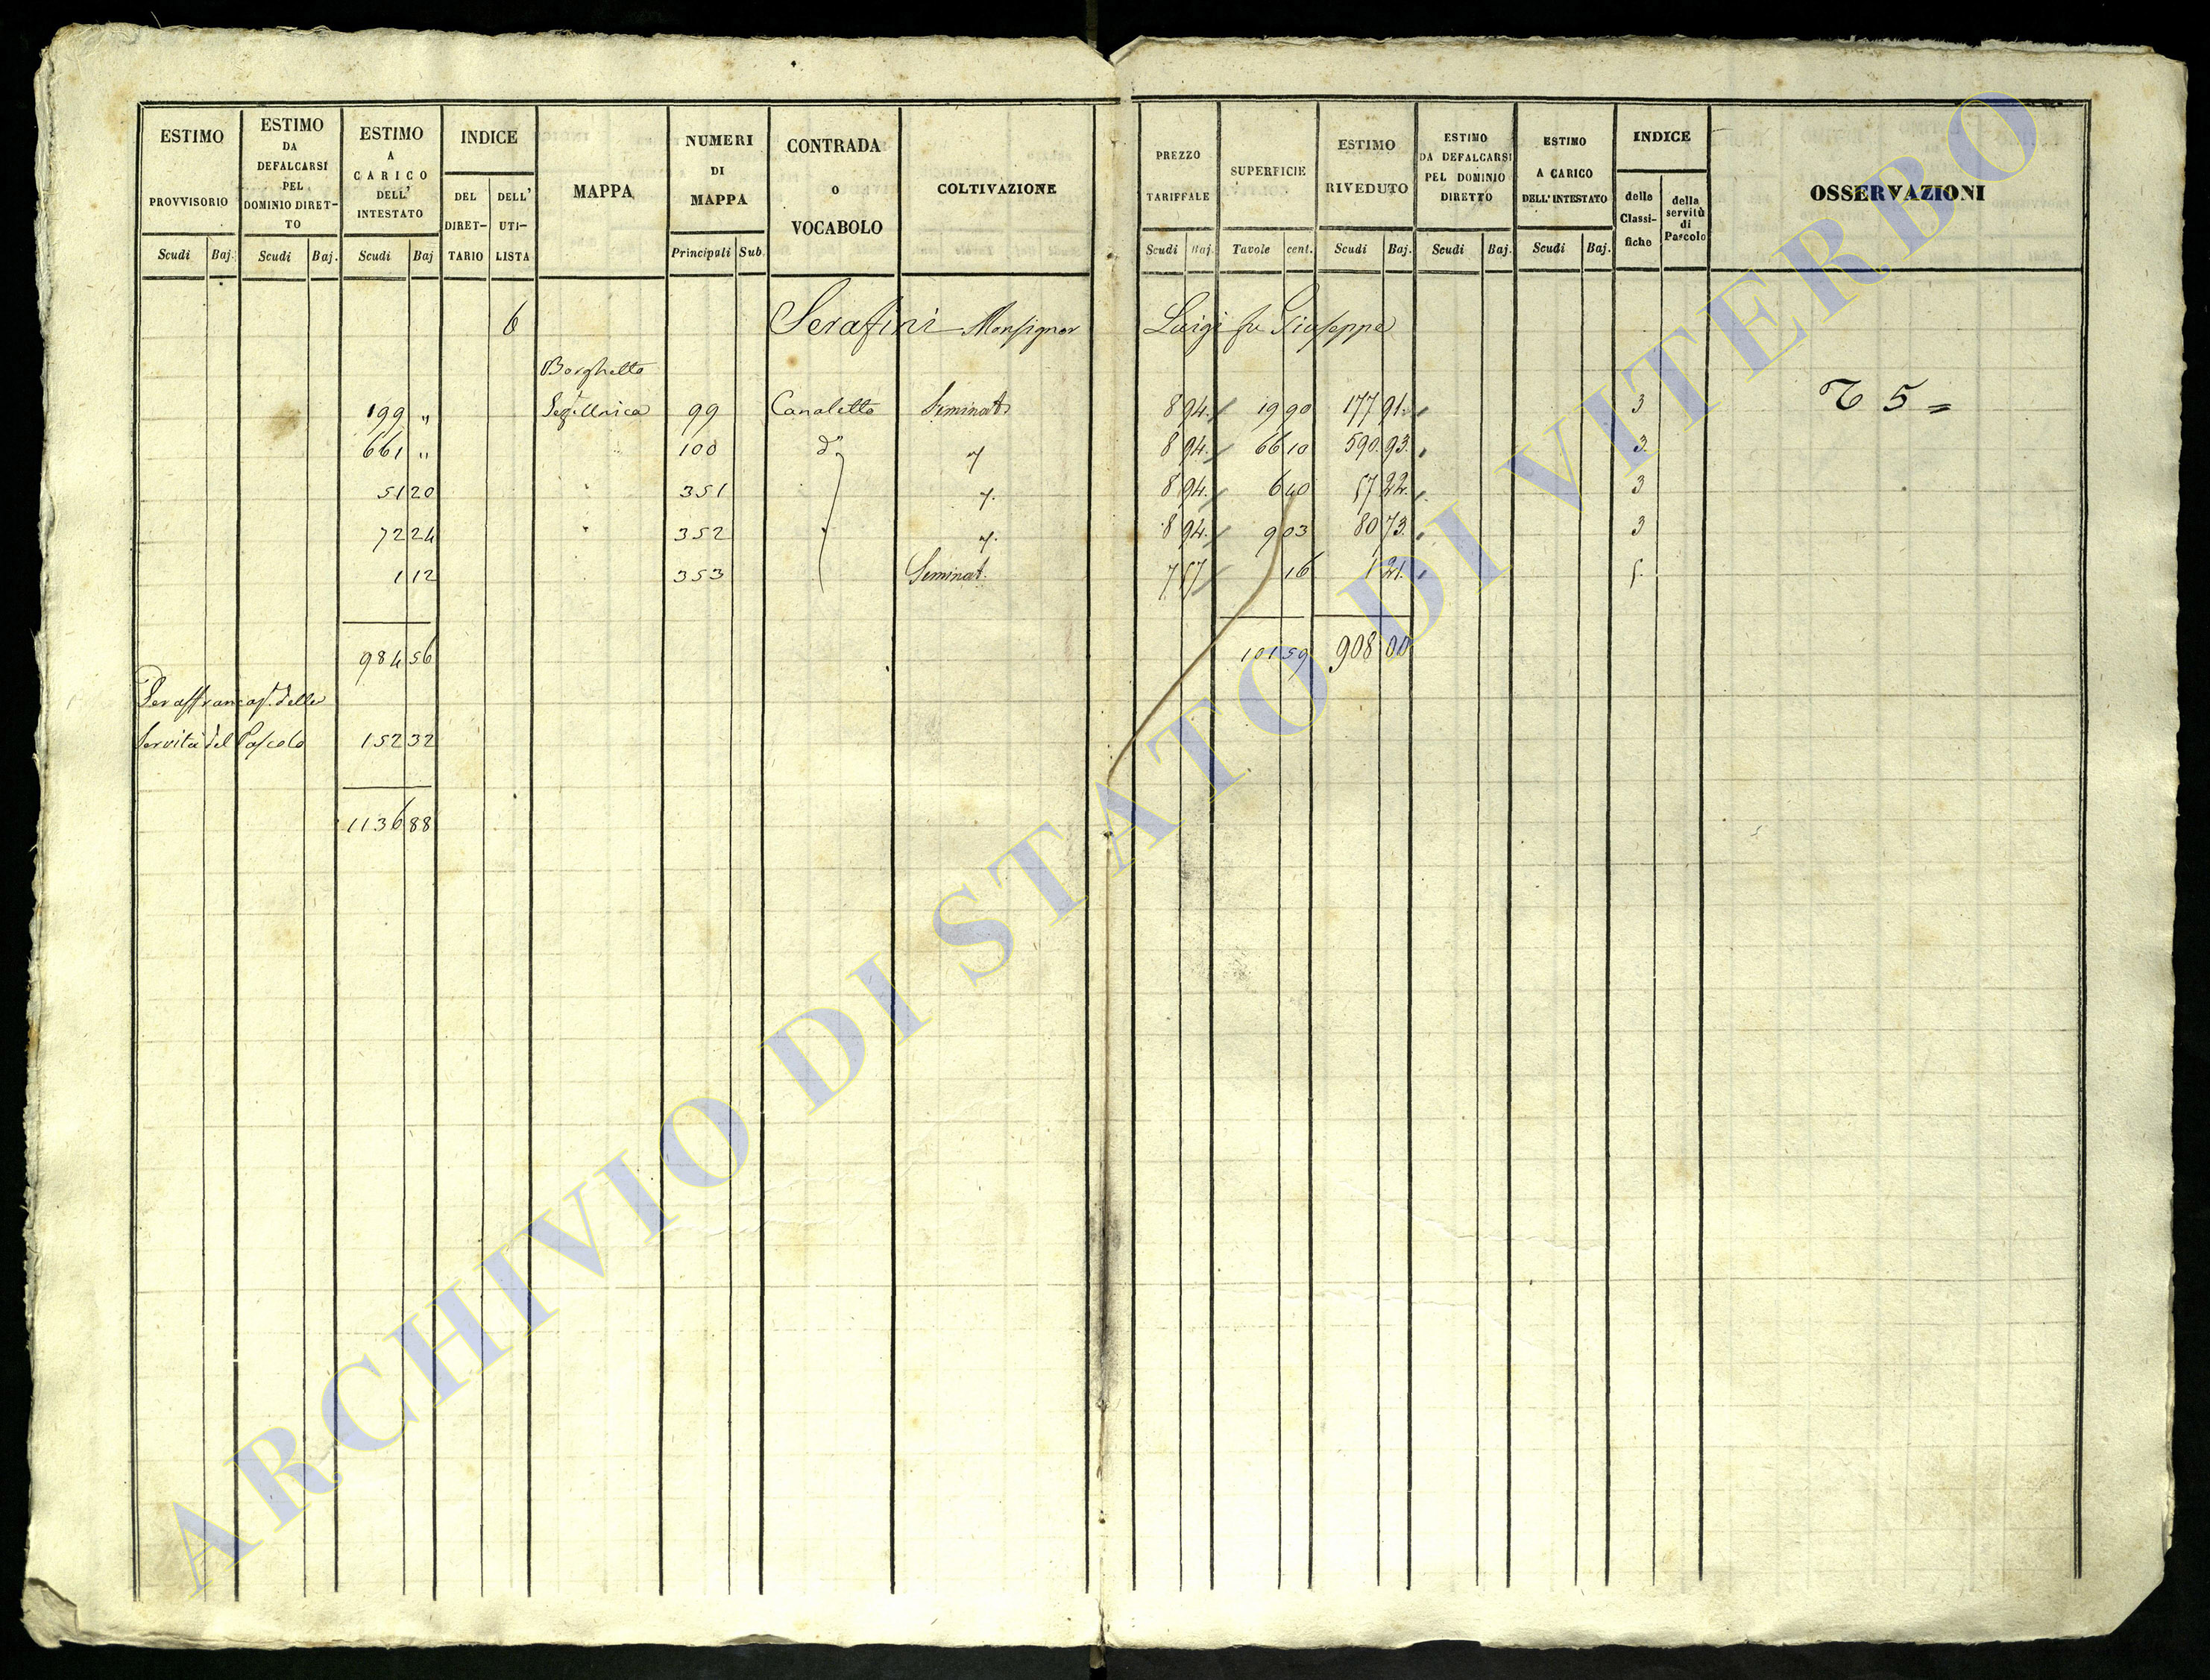 ESTIMO PROVVISORIO Scudi Baj.
ESTIMO DA DEFALCARSI PEL DOMINIO DIRET-TO Scudi Baj.
ESTIMO A CARICO DELL' INTESTATO Scudi Baj
INDICE DEL DIRET-TARIO DELL' UTI-LISTA
MAPPA
NUMERI DI MAPPA Principali Sub.
CONTRADA o VOCABOLO
COLTIVAZIONE
PREZZO TARIFFALE Scudi Baj.
SUPERFICIE Tavole cent.
ESTIMO RIVEDUTO Scudi Baj.
ESTIMO DA DEFALCARSI PEL DOMINIO DIRETTO Scudi Baj.
ESTIMO A CARICO DELL' INTESTATO Scudi Baj.
INDICE delle Classi-fiche della servitù di Pascolo
OSSERVAZIONI
6 Serafini Monsignor Luigi fu Giuseppe
Borghetto
199 " 99 Canaletto Seminat 8 94. 19 90 177 91. 3 5 =
661 " 100 d° " 8 94. 66 10 590. 93. 3.
51 20 351 " 8 94. 6 40 57 22. 3
72 24 352 " 8 94. 9 03 80 73. 3
1 12 353 Seminat. 7 57 16 1 21. 5.
984 56 101 59 908 00
Per affrancaz. delle
Servitù del Pascolo 152 32
1136 88
ARCHIVIO DI STATO DI VITERBO